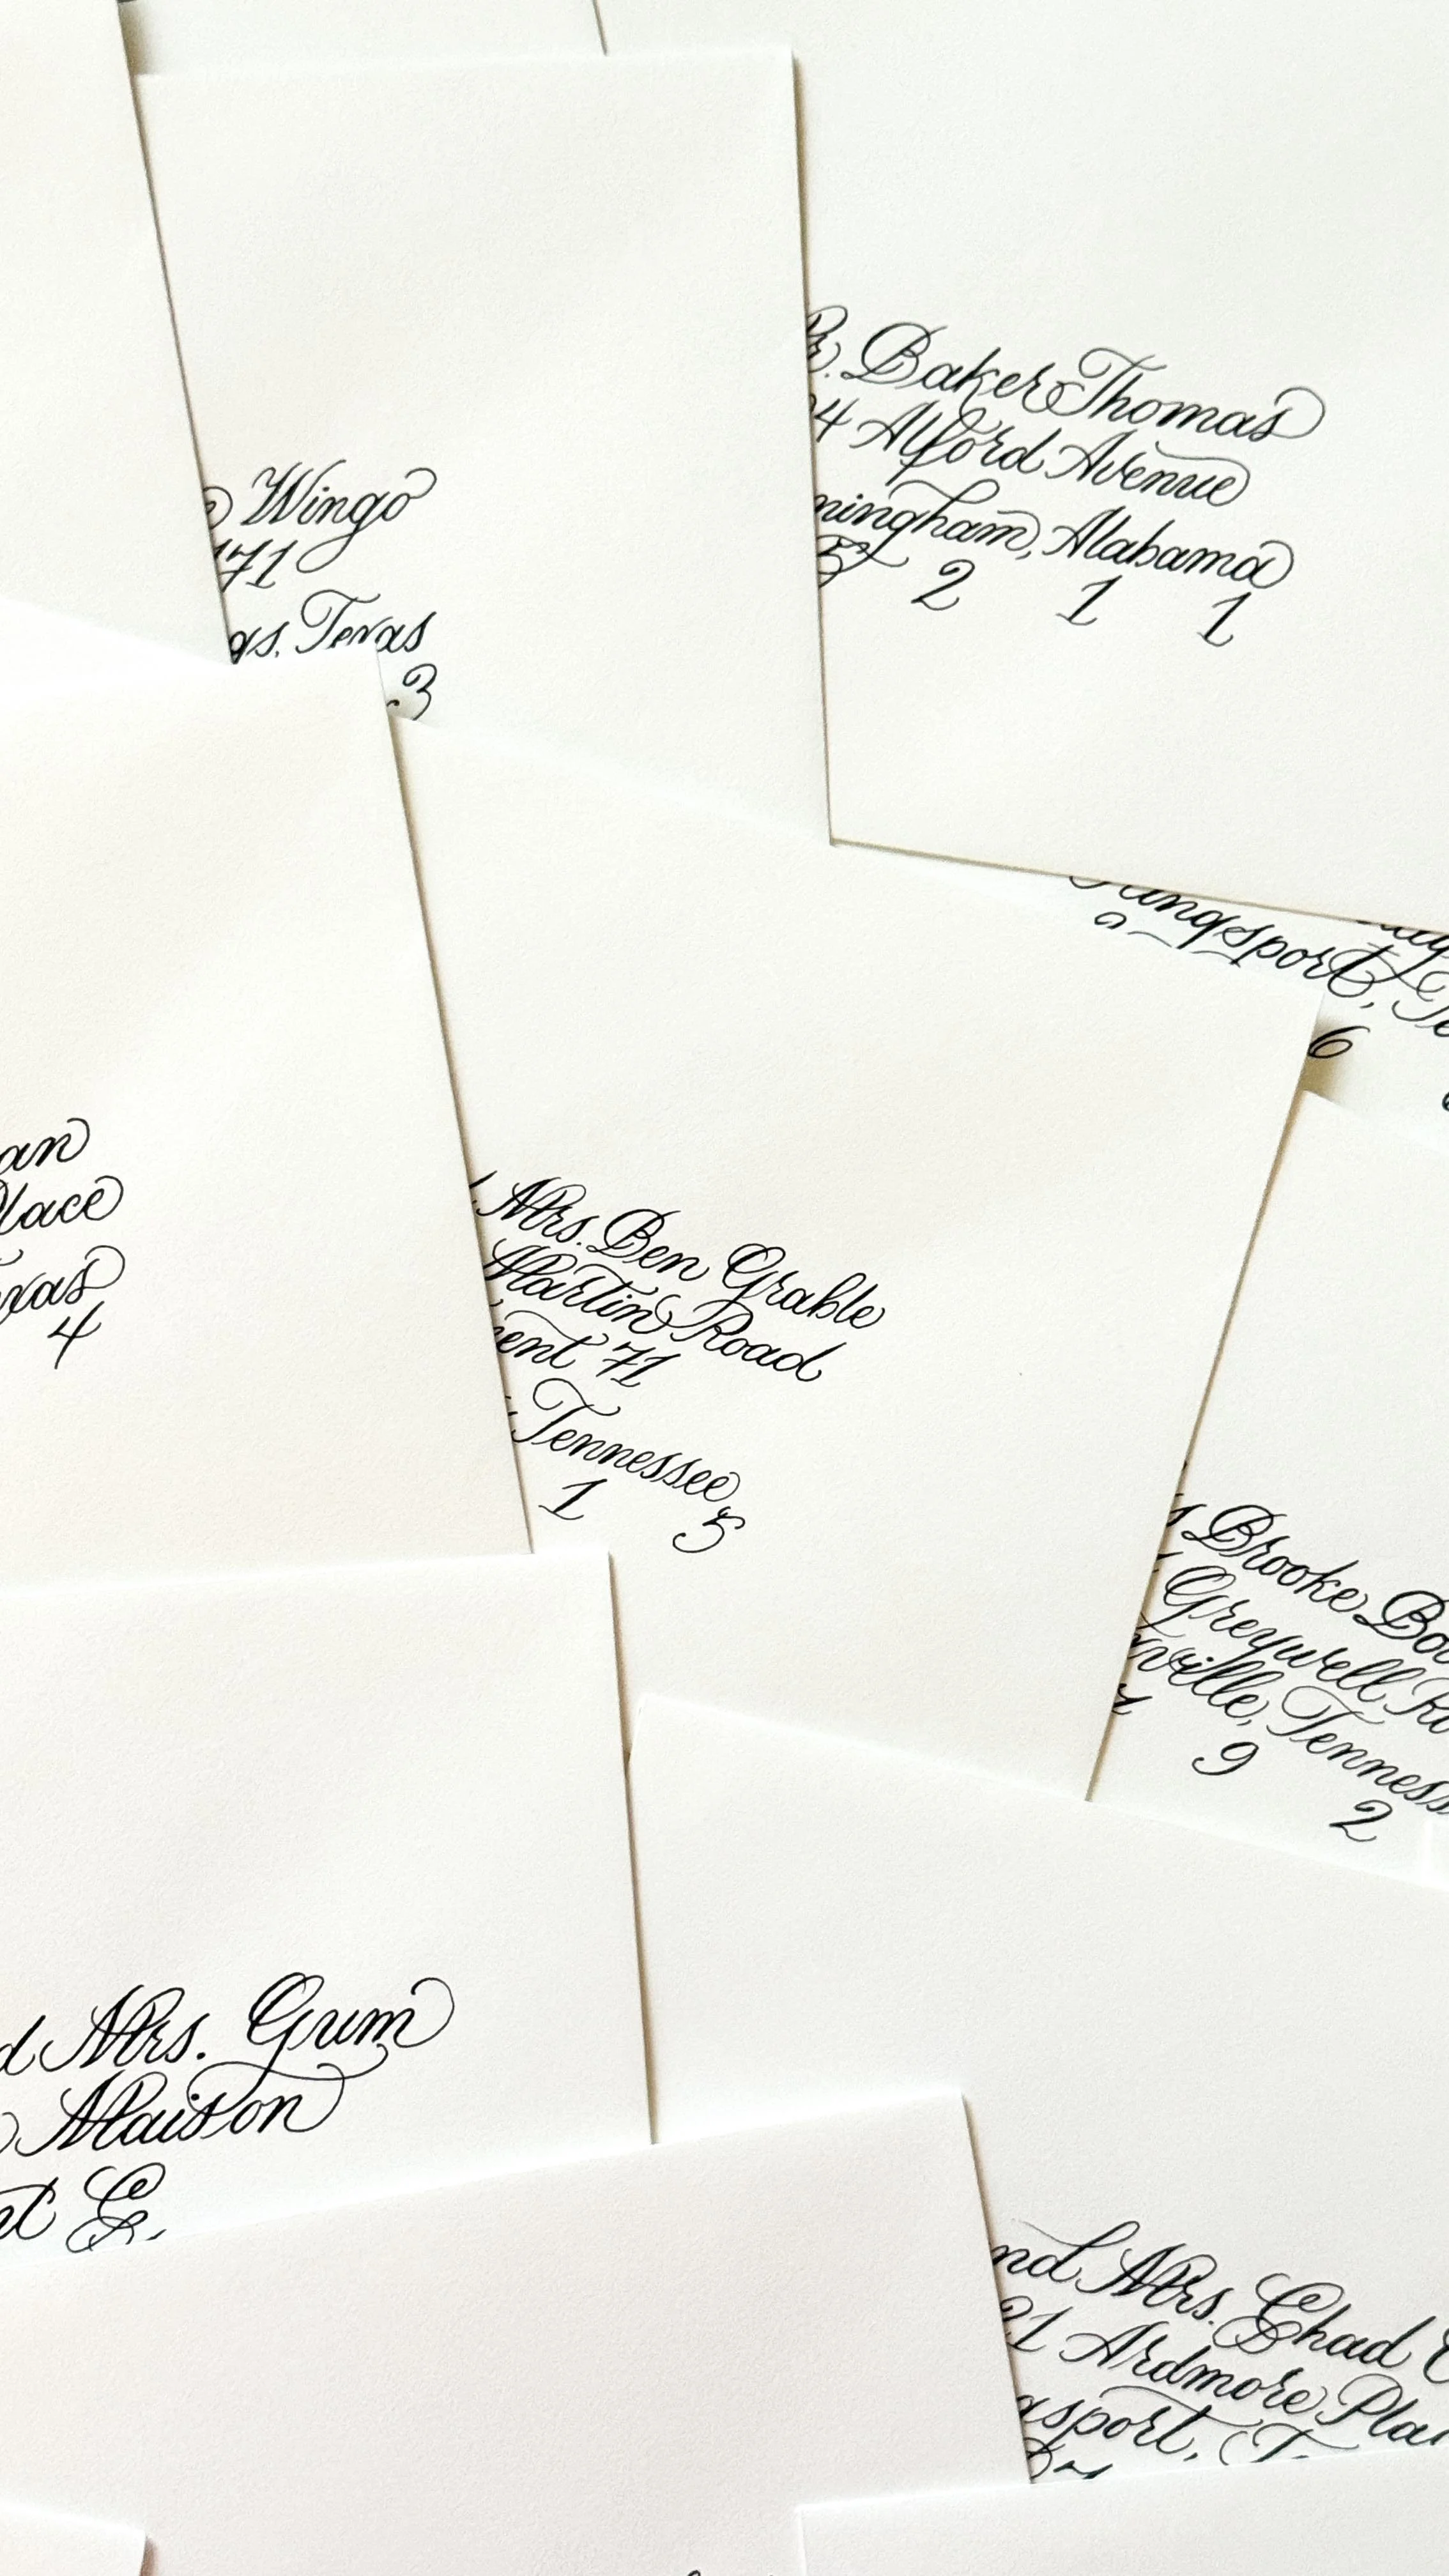 Wingo
71
gs, Texas
3
Dr. Baker Thomas
4 Alford Avenue
mingham, Alabama
5 2 1 1
Kingsport, Te
6
an
Place
exas
4
Mrs. Ben Grable
Martin Road
ment 71
, Tennessee
1 5
s Brooke Bo
Greywell Ro
ville, Tenness
9 2
d Mrs. Gum
Maison
nt E.
nd Mrs. Chad
21 Ardmore Pla
gsport, T